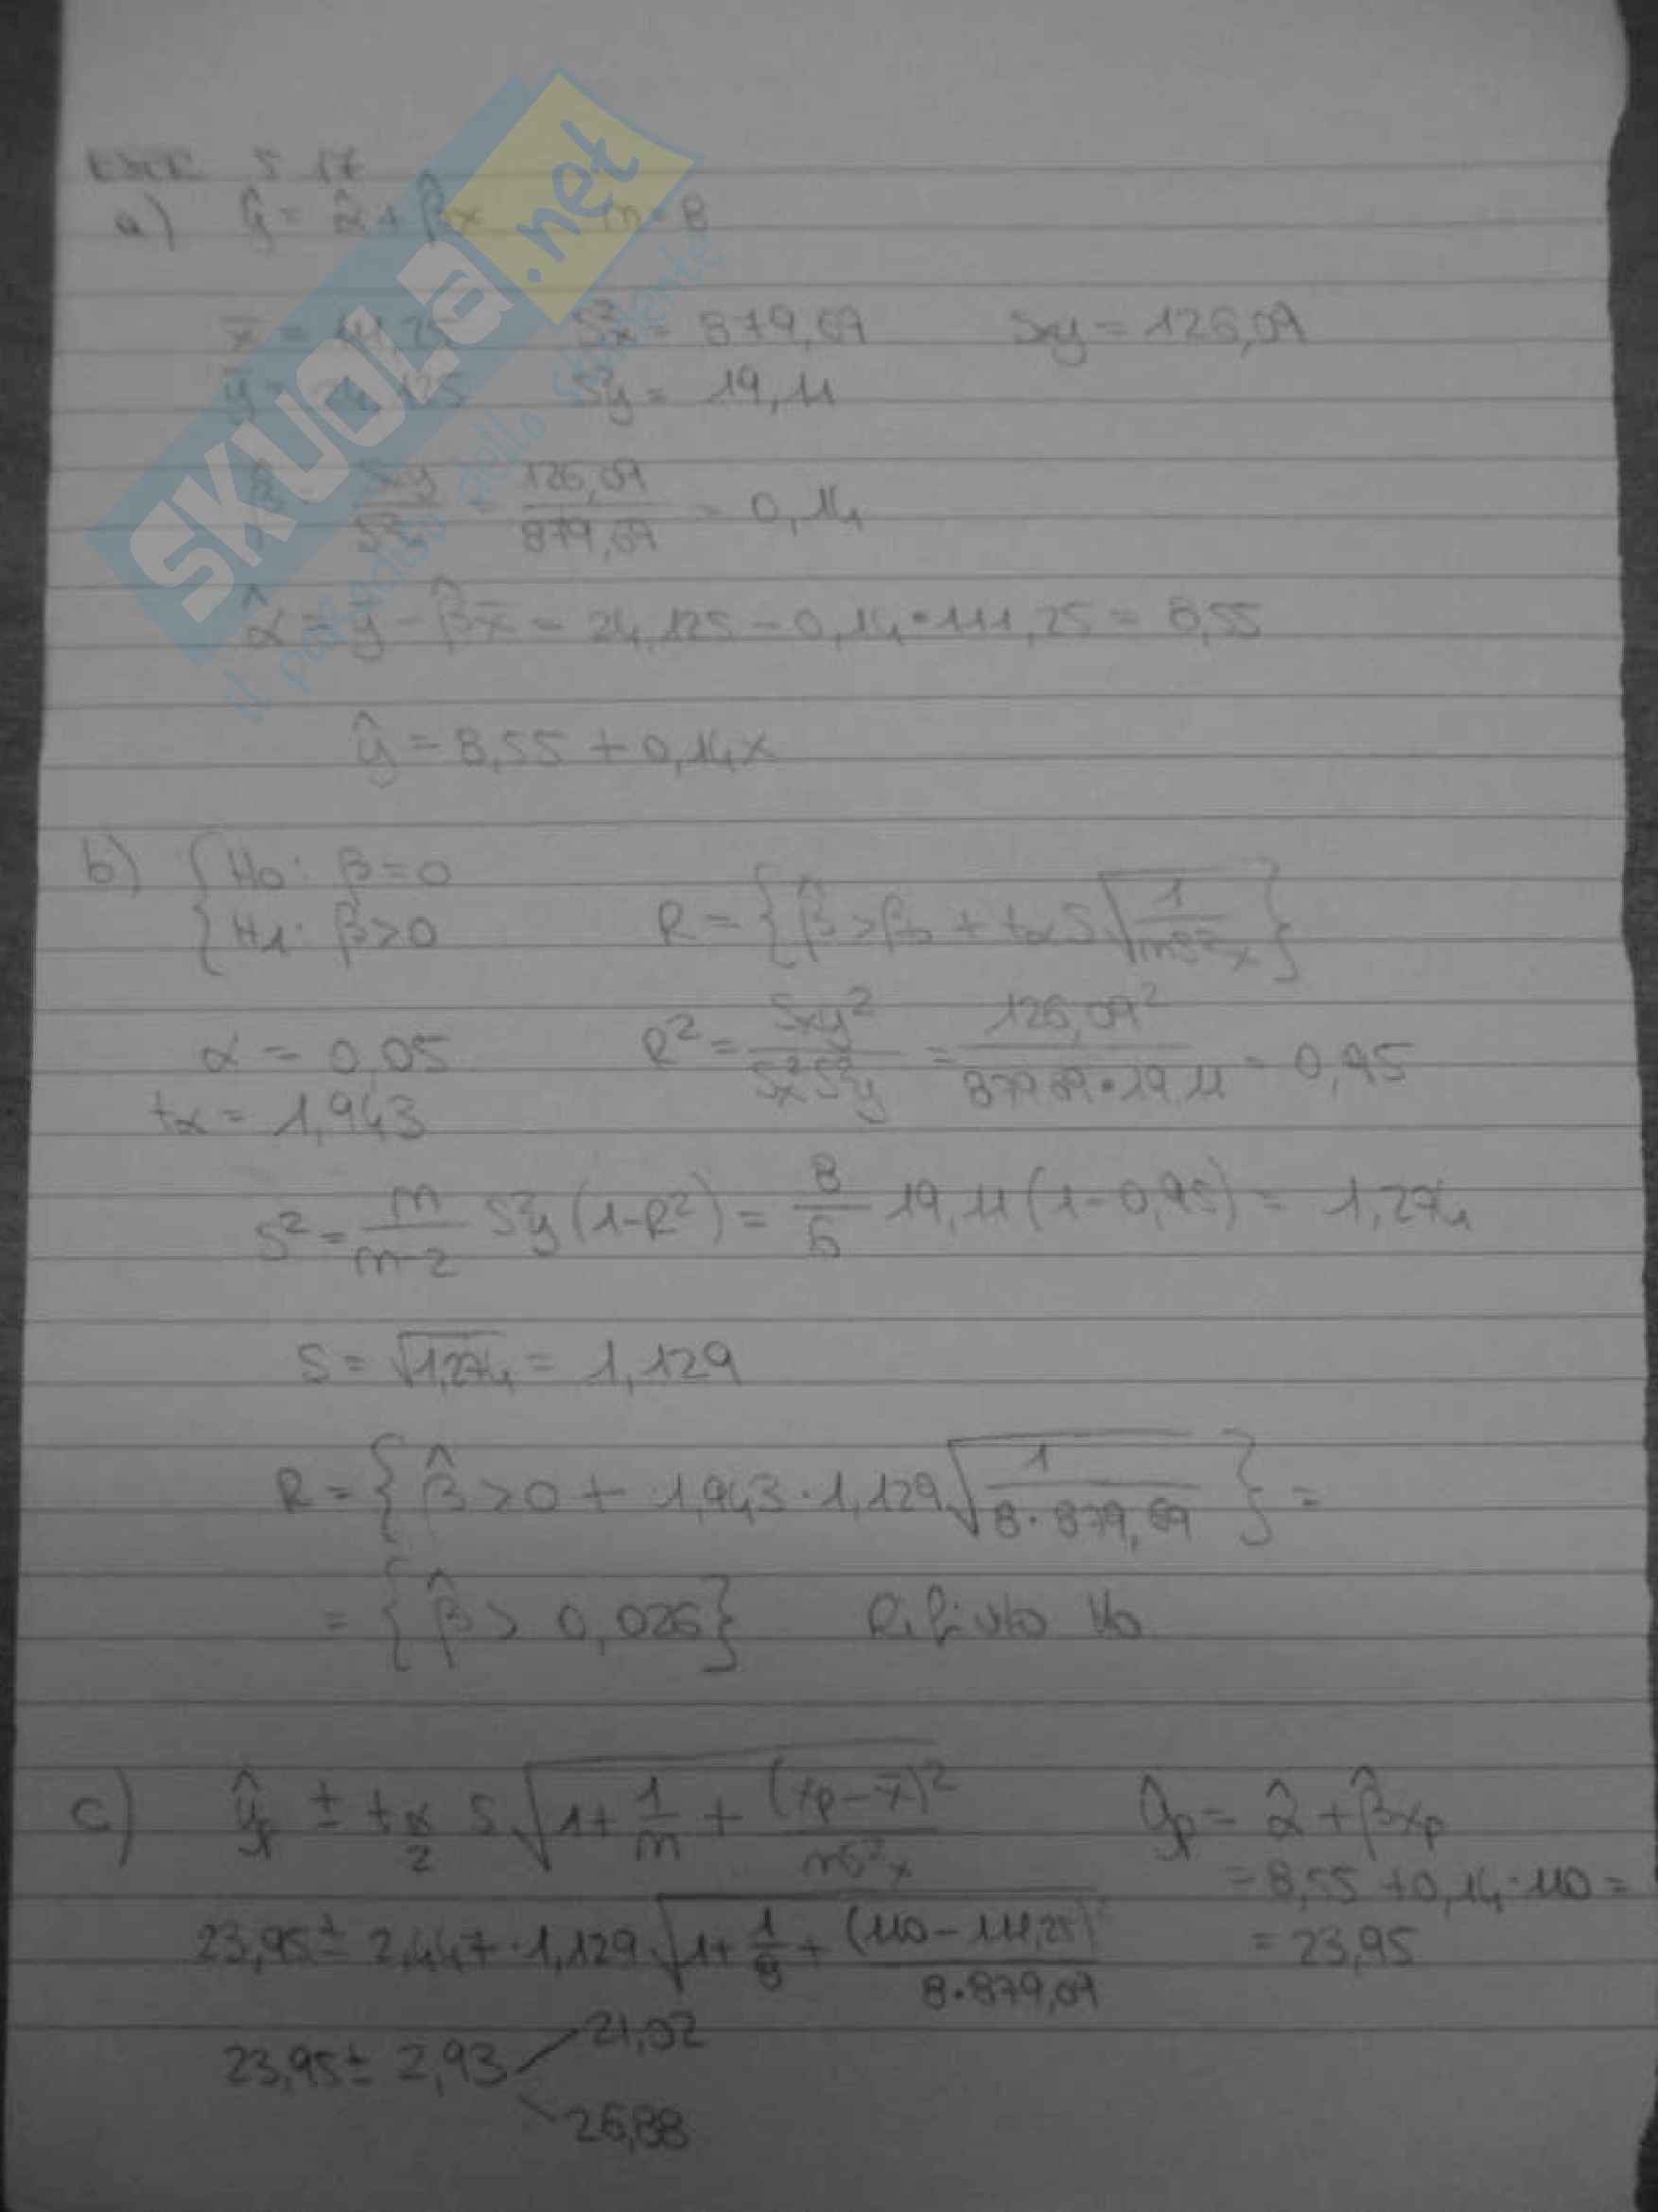 5 17
a) ŷ = α̂ + β̂x n = 8
x̄ = 111,25 S²x = 879,69 Sxy = 126,09
ȳ = 24,125 S²y = 19,11
β̂ = Sxy/S²x = 126,09/879,69 = 0,14
α̂ = ȳ - β̂x̄ = 24,125 - 0,14 • 111,25 = 8,55
ŷ = 8,55 + 0,14x
b) { H0: β = 0
{ H1: β > 0 R = { β̂ > β0 + tα S √(1/(nS²x)) }
α = 0,05 R² = Sxy²/(S²x S²y) = 126,09²/(879,69 • 19,11) = 0,95
tα = 1,943
S² = n/(n-2) S²y (1-R²) = 8/6 19,11 (1-0,95) = 1,274
S = √1,274 = 1,129
R = { β̂ > 0 + 1,943 · 1,129 √(1/(8 · 879,69)) } =
= { β̂ > 0,026 } Rifiuto H0
c) ŷp ± tα/2 S √(1 + 1/n + (xp - x̄)²/(nS²x)) ŷp = α̂ + β̂xp
= 8,55 + 0,14 · 110 =
23,95 ± 2,447 · 1,129 √(1 + 1/8 + (110 - 111,25)²/(8 • 879,69)) = 23,95
23,95 ± 2,93 21,02
26,88
SKUOLA.net
il paradiso dello studente